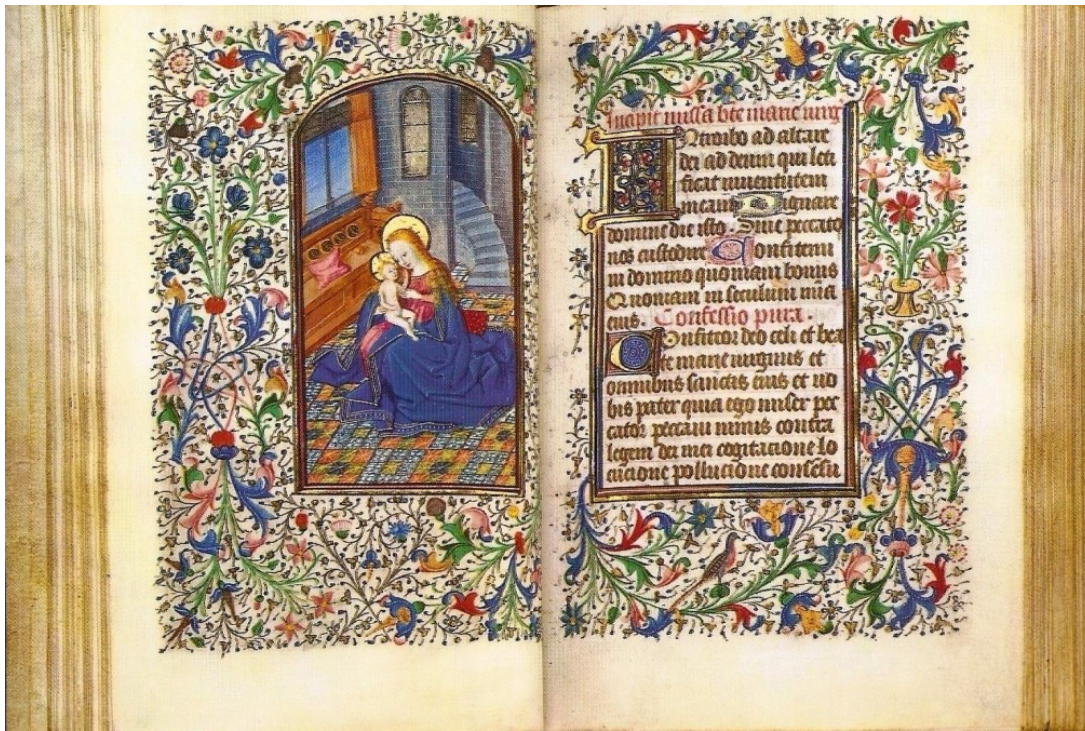 Incipit missa bte marie virg
Introibo ad altare
dei ad deum qui leti
ficat iuuentutem
meam Dignare
domine die isto. Sine peccato
nos custodire Confitemi
ni domino quoniam bonus
Quoniam in seculum mia
eius. Confessio pura.
Confiteor deo celi et bea
te marie uirginis et
omnibus sanctis eius et uo
bis pater quia ego miser pec
cator peccaui nimis contra
legem dei mei cogitacione lo
cucione pollucione consesu